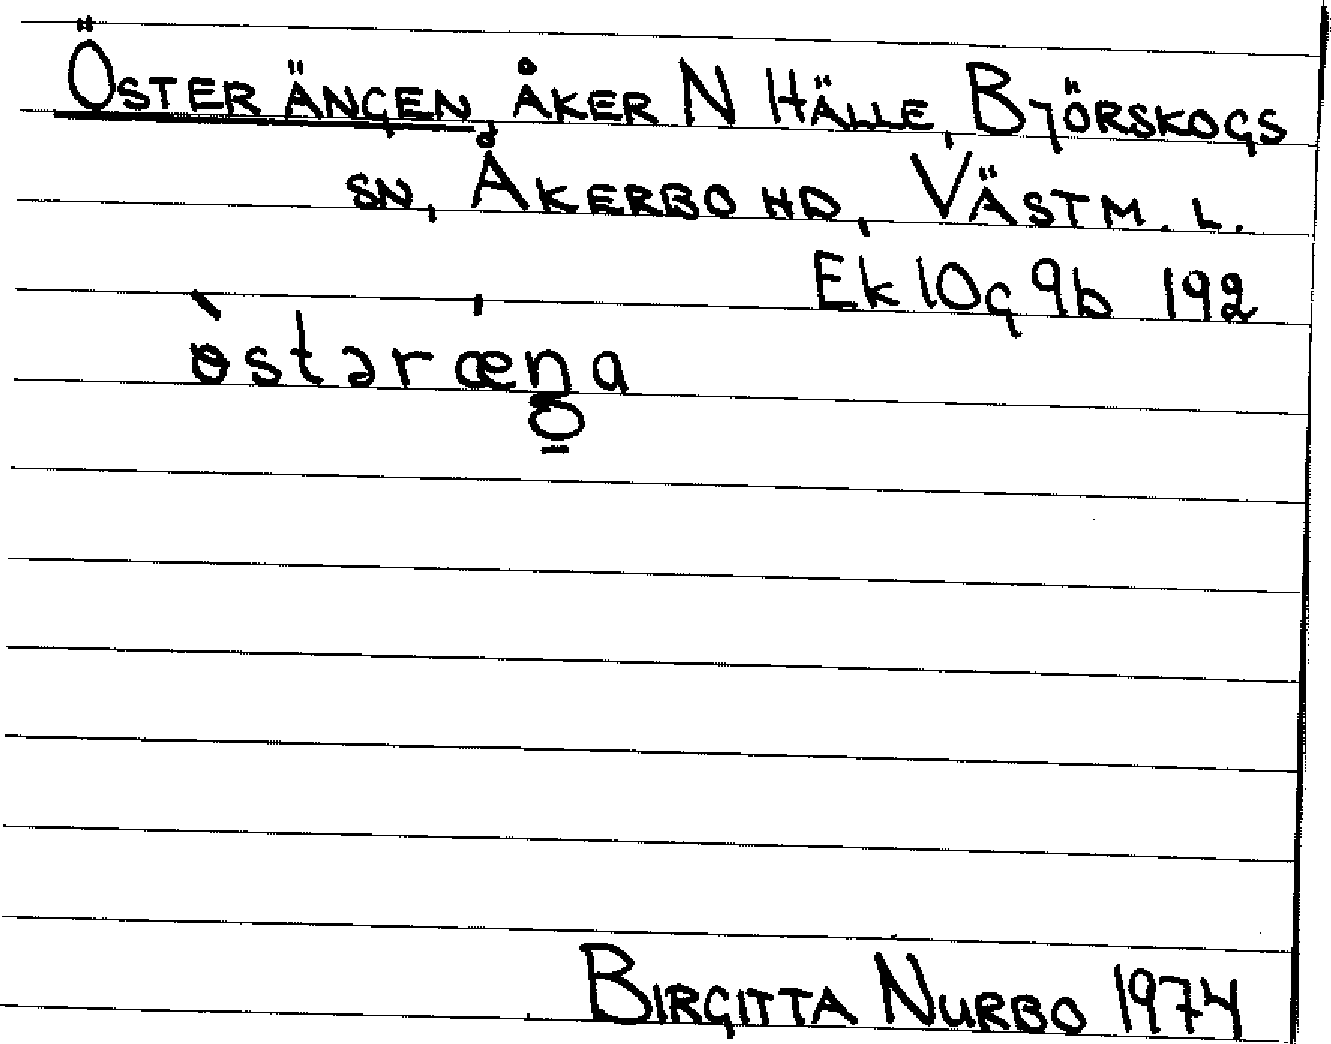 ÖSTER ÄNGEN, ÅKER N HÄLLE, BJÖRSKOGS
SN, ÅKERBO HD, VÄSTM. L.
Ek 10g 9b 192
òstəræŋa
BIRGITTA NURBO 1974